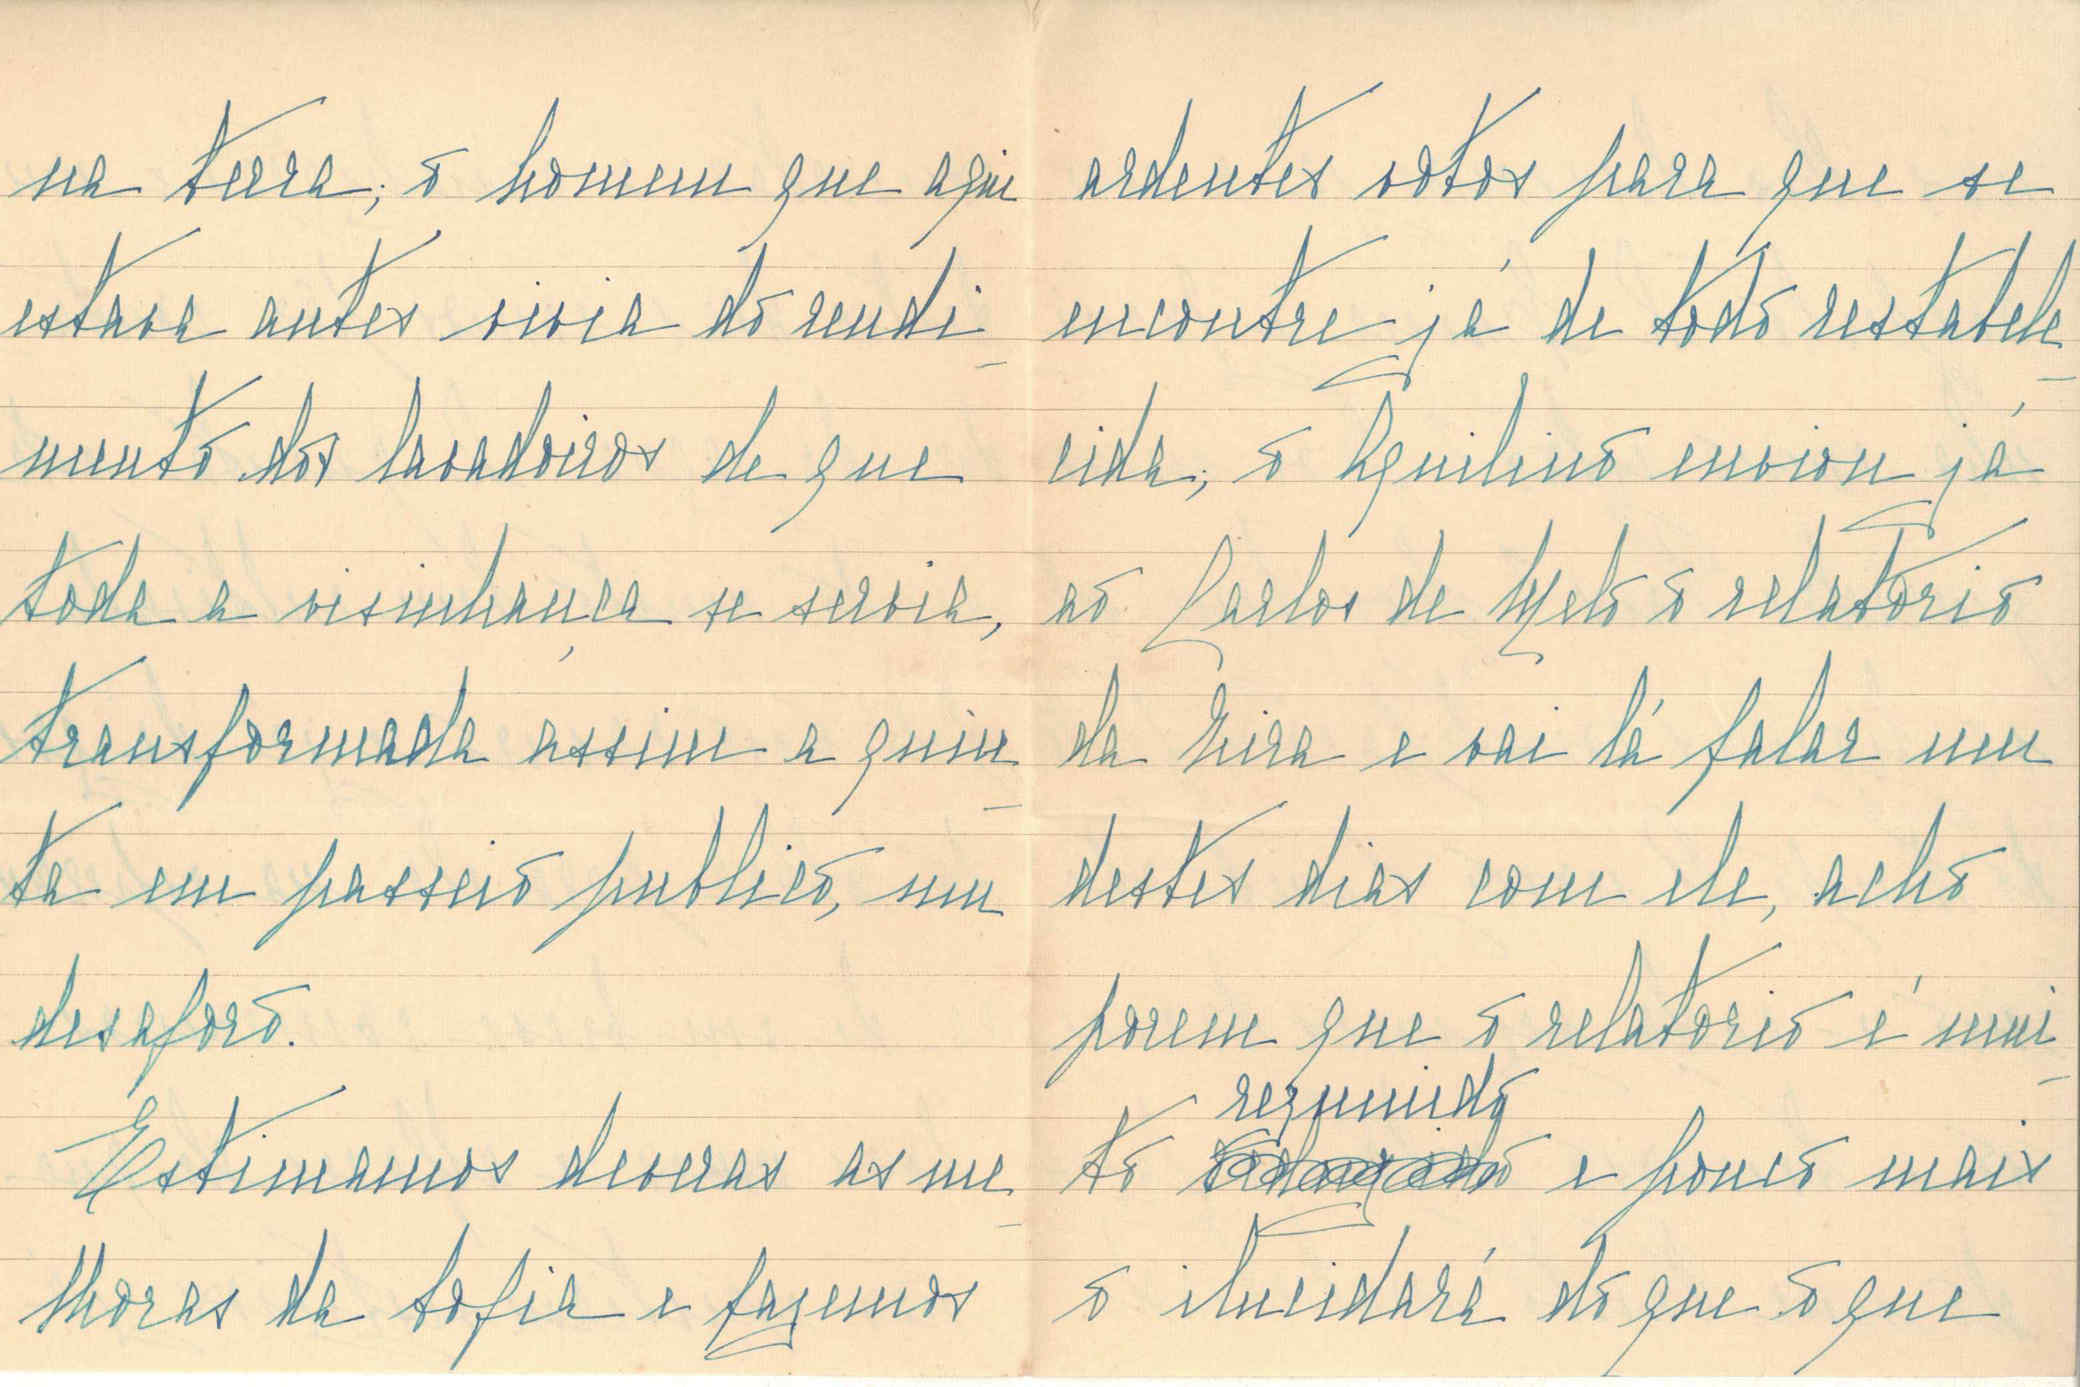 na terra; o homem que aqui
estava antes vivia do rendi-
mento dos lavadoiros de que
toda a visinhança se servia,
transformada assim a quin-
ta em passeio publico, um
desaforo.
Estimamos deveras as me-
lhoras da Sofia e fazemos
ardentes votos para que se
encontre já de todo restabele-
cida; o Aquilino enviou já
ao Carlos de Melo o relatorio
da Lira e vai lá falar um
destes dias com ele, acho
porem que o relatorio é mui-
rezumido
to e pouco mais
o ilucidará do que o que